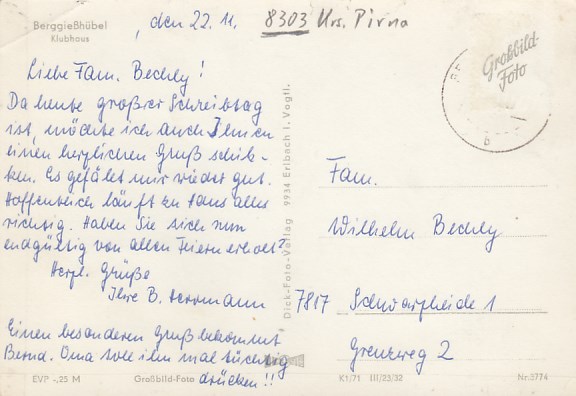 Berggießhübel
Klubhaus
, den 22. 11.
8303 Krs. Pirna
Liebe Fam. Bechly!
Da heute großer Schreibtag
ist, möchte ich auch Ihnen
einen herzlichen Gruß schik-
ken. Es gefällt mir wieder gut.
Hoffentlich läuft zu Haus alles
richtig. Haben Sie sich nun
endgültig von allen Feiern erholt?
Herzl. Grüße
Ihre B. Herrmann
Einen besonderen Gruß bekommt
Bernd. Oma soll ihn mal tüchtig
drücken!!
EVP -,25 M
Großbild-Foto
Dick-Foto-Verlag 9934 Erlbach i. Vogtl.
Großbild-
Foto
b
Fam.
Wilhelm Bechly
7817 Schwarzheide 1
Grenzweg 2
K1/71 III/23/32
Nr. 3774